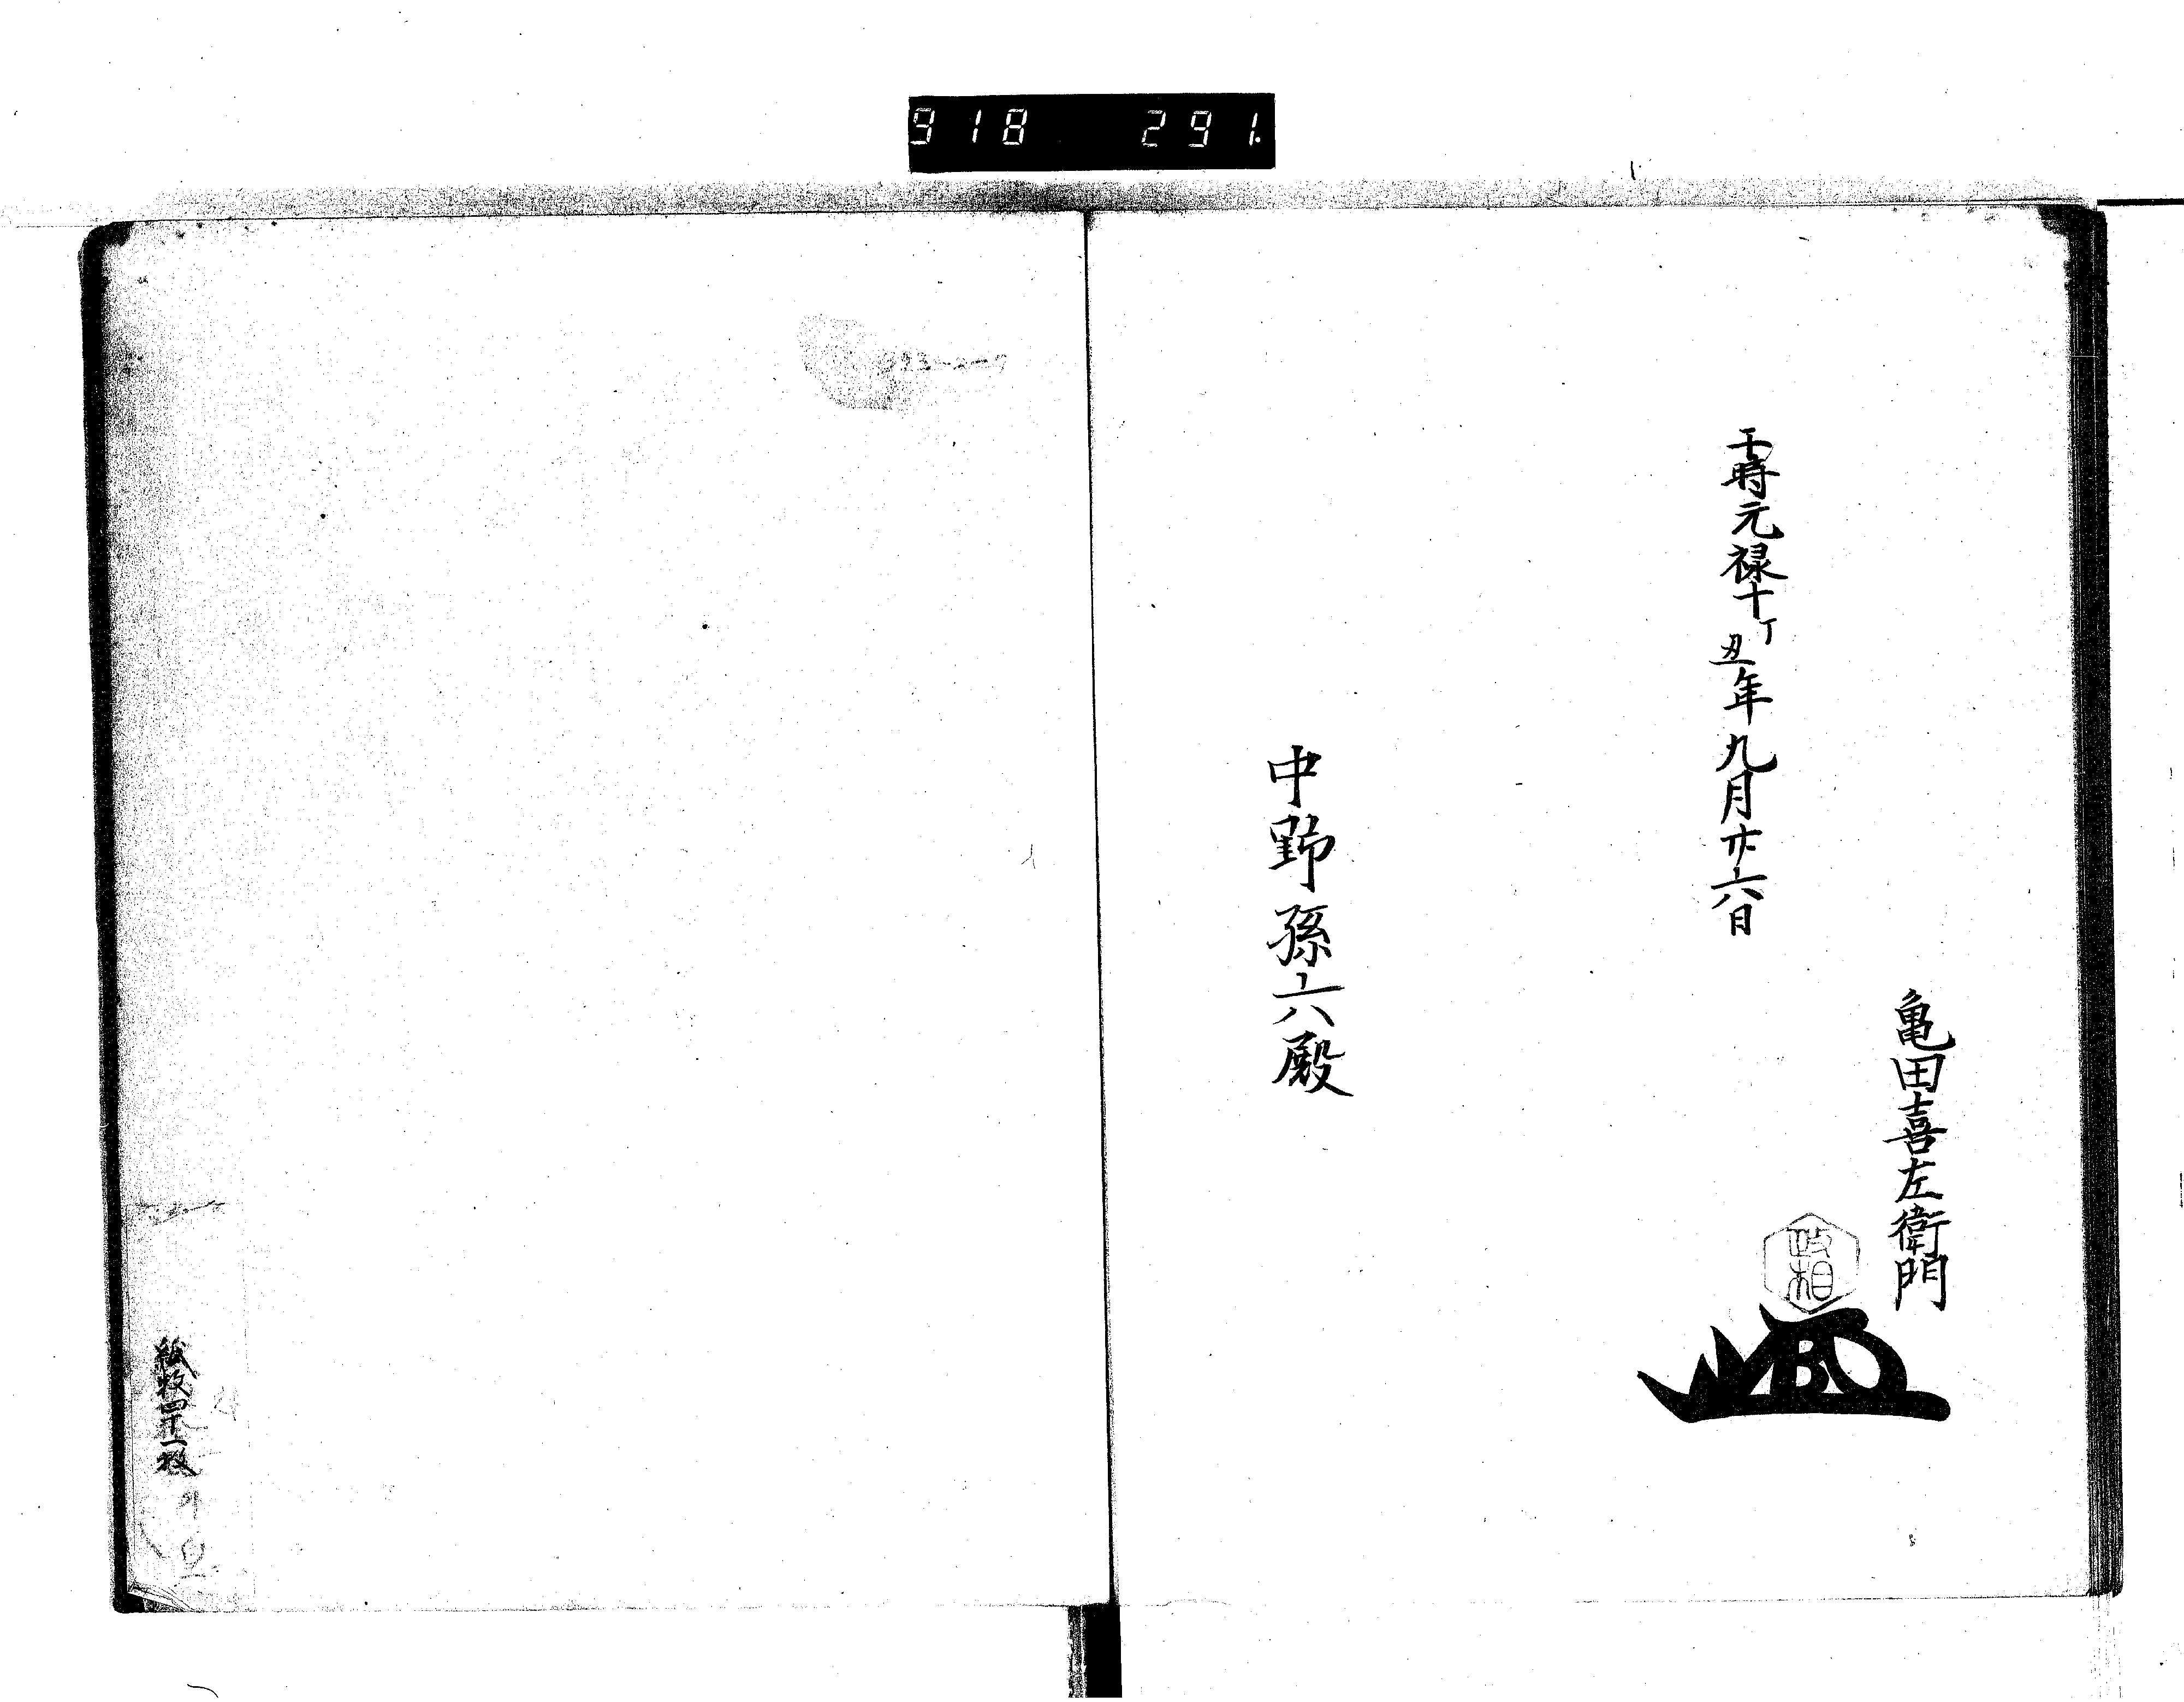 918 291.
亀田喜左衛門
政相
于時元禄十丁丑年九月廿六日
中野孫六殿
紙枚四十一枚